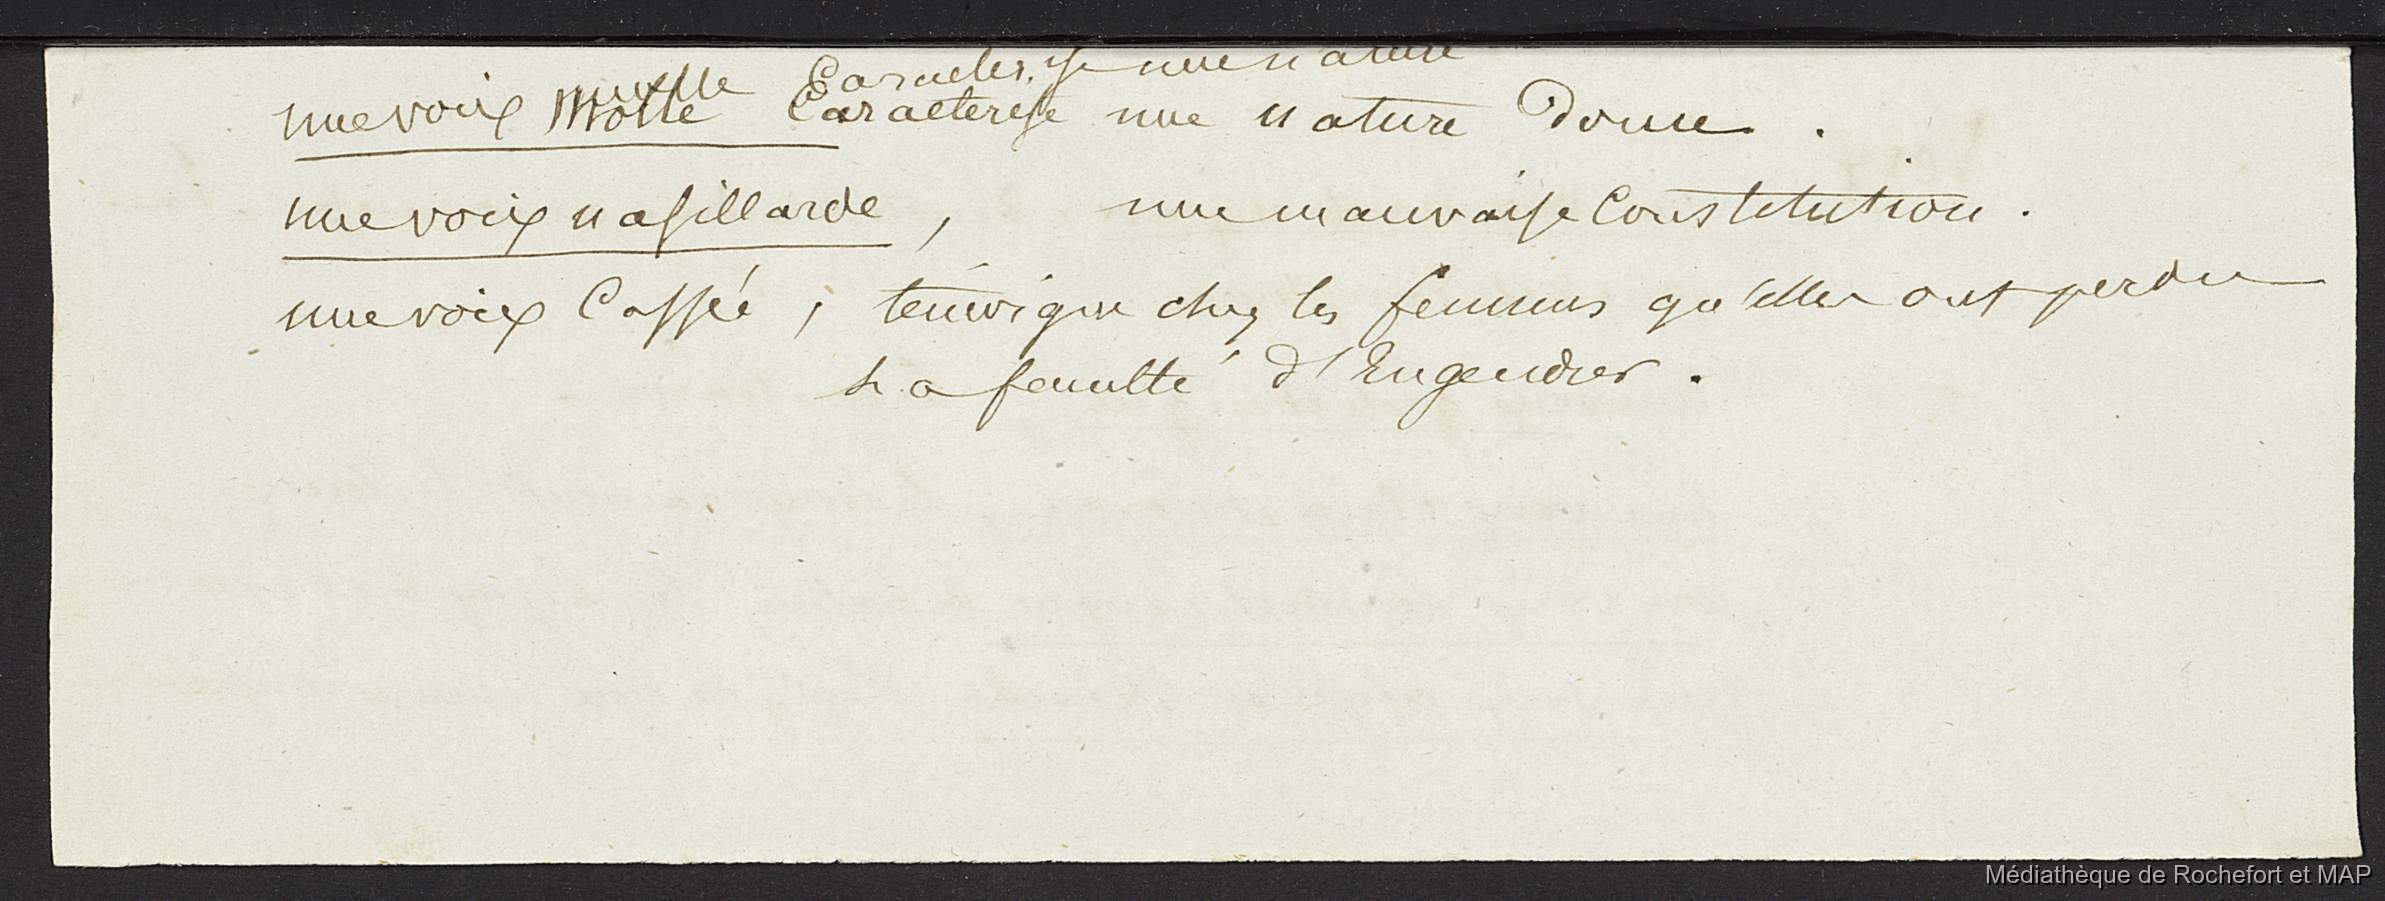 molle Caracterise une nature
une voix Molle Caracterise une nature Douce .
une voix nasillarde , une mauvaise Constitution .
une voix Cassée , temoigne chez les femmes qu'elles ont perdu
La faculté d'Engendrer .
Médiathèque de Rochefort et MAP